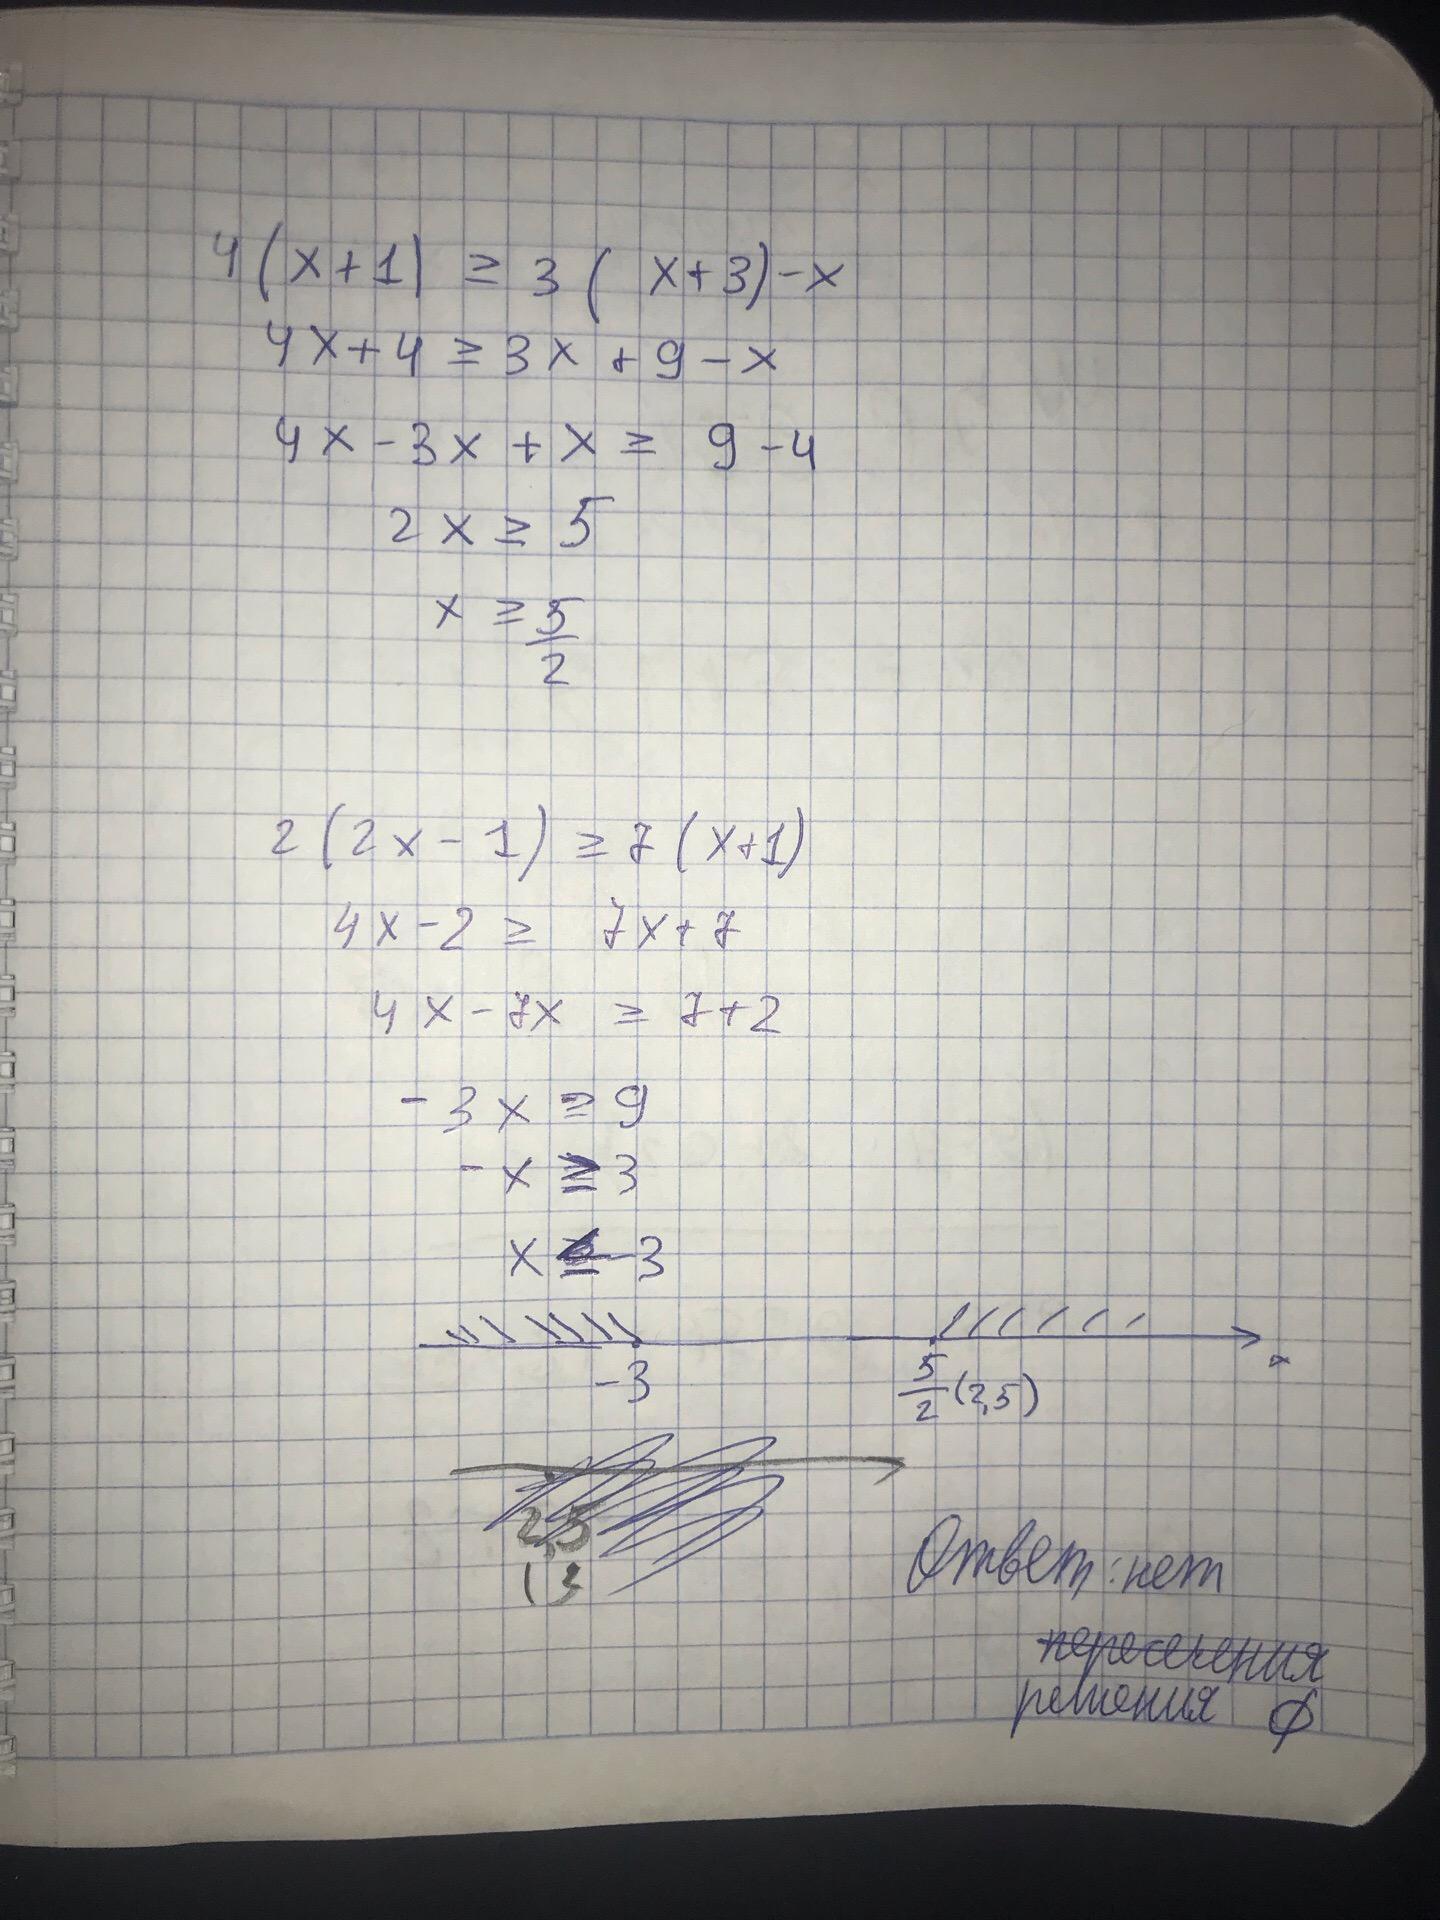 4(x+1) ≥ 3(x+3)-x
4x+4 ≥ 3x+9-x
4x-3x+x ≥ 9-4
2x ≥ 5
x ≥ 5/2
2(2x-1) ≥ 7(x+1)
4x-2 ≥ 7x+7
4x-7x ≥ 7+2
-3x ≥ 9
-x ≥ 3
x ≤ -3
-3 5/2 (2,5) x
2,5
Ответ: нет
пересечения
решения ∅